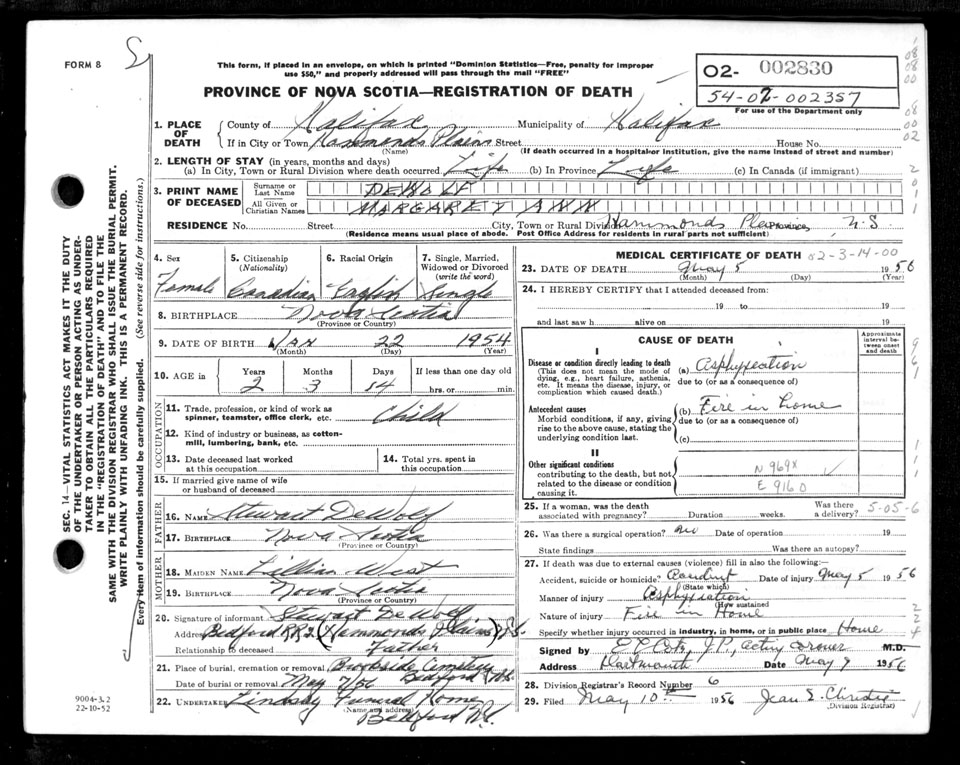 FORM 8
This form, if placed in an envelope, on which is printed "Dominion Statistics—Free, penalty for improper
use $50," and properly addressed will pass through the mail "FREE"
PROVINCE OF NOVA SCOTIA—REGISTRATION OF DEATH
02- 002830
54-02-002357
For use of the Department only
1. PLACE OF DEATH
County of Halifax Municipality of Halifax
If in City or Town Hammonds Plains Street House No.
(Name) (If death occurred in a hospital or institution, give the name instead of street and number)
2. LENGTH OF STAY (in years, months and days)
(a) In City, Town or Rural Division where death occurred Life (b) In Province Life (c) In Canada (if immigrant)
3. PRINT NAME OF DECEASED
Surname or Last Name DEWOLF
All Given or Christian Names MARGARET ANN
RESIDENCE No. Street City, Town or Rural Division Hammonds Plains Province N.S.
(Residence means usual place of abode. Post Office Address for residents in rural parts not sufficient)
4. Sex Female
5. Citizenship (Nationality) Canadian
6. Racial Origin English
7. Single, Married, Widowed or Divorced (write the word) Single
8. BIRTHPLACE Nova Scotia
(Province or Country)
9. DATE OF BIRTH Jan 22 1954
(Month) (Day) (Year)
10. AGE in Years Months Days If less than one day old
2 3 14 hrs. or min.
OCCUPATION
11. Trade, profession or kind of work as spinner, teamster, office clerk, etc. Child
12. Kind of industry or business, as cotton-mill, lumbering, bank, etc.
13. Date deceased last worked at this occupation
14. Total yrs. spent in this occupation
15. If married give name of wife or husband of deceased
FATHER
16. NAME Stewart DeWolf
17. BIRTHPLACE Nova Scotia
(Province or Country)
MOTHER
18. MAIDEN NAME Lillian West
19. BIRTHPLACE Nova Scotia
(Province or Country)
20. Signature of informant Stewart DeWolf
Address Bedford RR2 (Hammonds Plains) N.S.
Relationship to deceased Father
21. Place of burial, cremation or removal Brookside Cemetery
Date of burial or removal May 7/56 Bedford N.S.
22. UNDERTAKER Lindsay Funeral Home
(Name and address) Bedford N.S.
MEDICAL CERTIFICATE OF DEATH 02-3-14-00
23. DATE OF DEATH May 5 1956
(Month) (Day) (Year)
24. I HEREBY CERTIFY that I attended deceased from:
19 to 19
and last saw h alive on 19
CAUSE OF DEATH
Approximate interval between onset and death
I
Disease or condition directly leading to death
(This does not mean the mode of dying, e.g., heart failure, asthenia, etc. It means the disease, injury, or complication which caused death.)
(a) Asphyxiation
due to (or as a consequence of)
Antecedent causes
Morbid conditions, if any, giving rise to the above cause, stating the underlying condition last.
(b) Fire in home
due to (or as a consequence of)
(c)
II
Other significant conditions
contributing to the death, but not related to the disease or condition causing it.
N 969X
E 916 0
25. If a woman, was the death associated with pregnancy? Duration weeks. Was there a delivery? 5-05-6
26. Was there a surgical operation? No Date of operation 19
State findings Was there an autopsy?
27. If death was due to external causes (violence) fill in also the following:
Accident, suicide or homicide? Accident Date of injury May 5 1956
(State which)
Manner of injury Asphyxiation
(How sustained)
Nature of injury Fire in Home
Specify whether injury occurred in industry, in home, or in public place Home
Signed by J.P., acting coroner M.D.
Address Dartmouth Date May 9 1956
28. Division Registrar's Record Number 6
29. Filed May 10th 1956 Jean E. Christie
(Division Registrar)
SEC. 14—VITAL STATISTICS ACT MAKES IT THE DUTY
OF THE UNDERTAKER OR PERSON ACTING AS UNDER-
TAKER TO OBTAIN ALL THE PARTICULARS REQUIRED
IN THE "REGISTRATION OF DEATH" AND TO FILE THE
SAME WITH THE DIVISION REGISTRAR WHO SHALL ISSUE THE BURIAL PERMIT.
WRITE PLAINLY WITH UNFADING INK. THIS IS A PERMANENT RECORD.
Every item of information should be carefully supplied. (See reverse side for instructions.)
9004-3.2
22-10-52